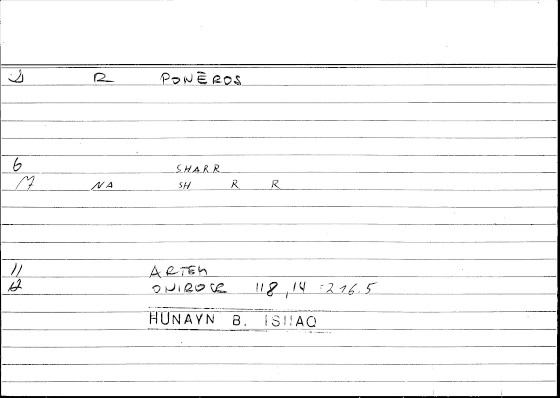 R PONĒROS
6 SHARR
NA SH R R
11 ARTEM
ONIROCR 118,14 = 216.5
HUNAYN B. ISHAQ